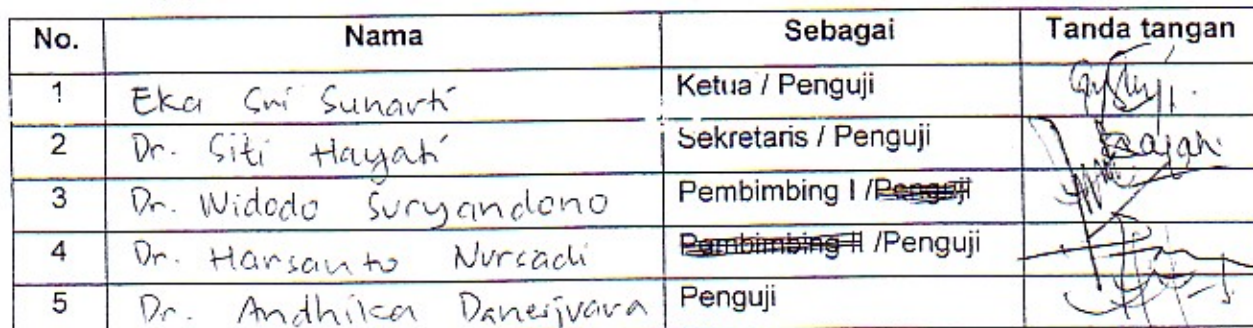 No. Nama Sebagai Tanda tangan
1 Eka Sri Sunarti Ketua / Penguji
2 Dr. Siti Hayati Sekretaris / Penguji
3 Dr. Widodo Suryandono Pembimbing I / Penguji
4 Dr. Harsanto Nursadi Pembimbing II / Penguji
5 Dr. Andhika Danesjvara Penguji